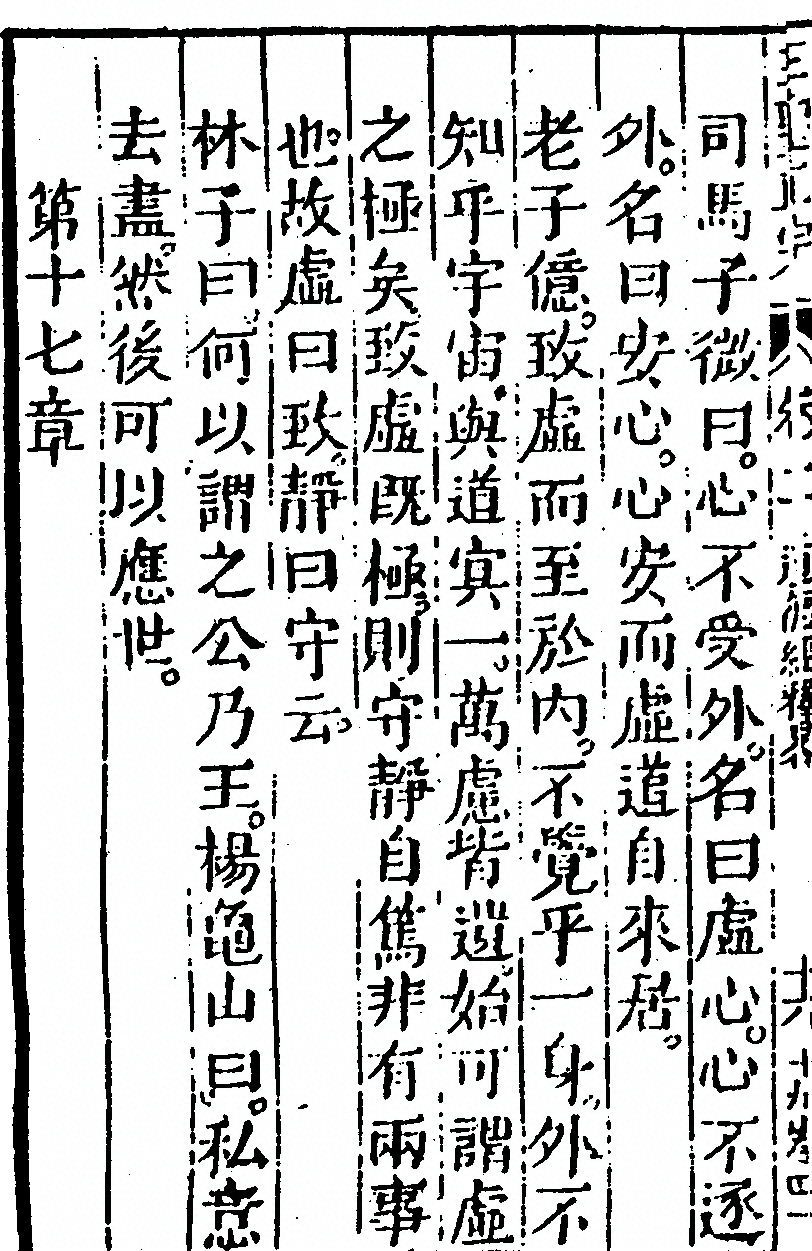 司馬子微曰。心不受外。名曰虛心。心不逐
外。名曰安心。心安而虛道自來居。
老子億。致虛而至於內。不覺乎一身。外不
知乎宇宙。與道冥一。萬慮皆遺。始可謂虛
之極矣致虛既極。則守靜自篤非有兩事
也。故虛曰致。靜曰守云。
林子曰。何以謂之公乃王。楊龜山曰。私意
去盡。然後可以應世。
第十七章